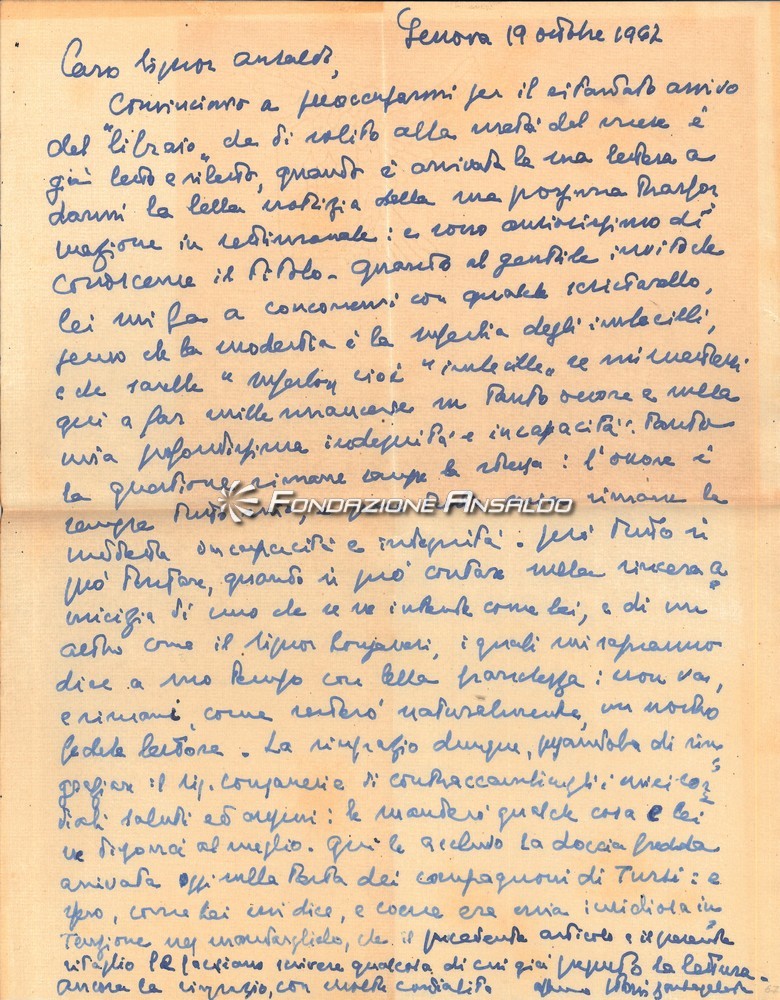 Genova 19 ottobre 1962
Caro Signor Ansaldo,
Cominciavo a preoccuparmi per il ritardato arrivo
del "libraio" che di solito alla metà del mese è
già letto e riletto, quando è arrivata la sua lettera a
darmi la bella notizia della sua prossima trasfor
mazione in settimanale: e sono ansiosissimo di
conoscerne il titolo. Quanto al gentile invito che
lei mi fa a concorrervi con qualche
penso che la modestia è la degli imbecilli,
e che sarebbe cioè "imbecille" se mi mettessi
qui a far mille in tanto onore e sulla
mia profondissima indegnità e incapacità: tanto
la questione rimane sempre la stessa: l'onore è
sempre tutto mio, e rimane la
suddetta incapacità e indegnità. però tutto si
può tentare, quando si può contare sulla sincera a
micizia di uno che se ne intende come lei, e di un
altro come il signor Longanesi, i quali mi sapranno
dire a suo tempo con bella franchezza: non va,
e rimani, come resterò naturalmente, un nostro
fedele lettore. La ringrazio dunque, pregandola di rin
graziare il sig. Longanesi e di contraccambiargli i miei cor
diali saluti ed auguri: le manderò qualche cosa e lei
ne disponga al meglio. Qui le accludo la doccia fredda
arrivata oggi sulla testa dei compagnoni di Tursi: e
spero, come lei mi dice, e come era mia insidiosa in
tenzione nel mandarglielo, che il precedente articolo e il presente
ritaglio le facciano scrivere qualcosa, di cui già la lettura.
ancora la ringrazio, con molta cordialità
FONDAZIONE ANSALDO